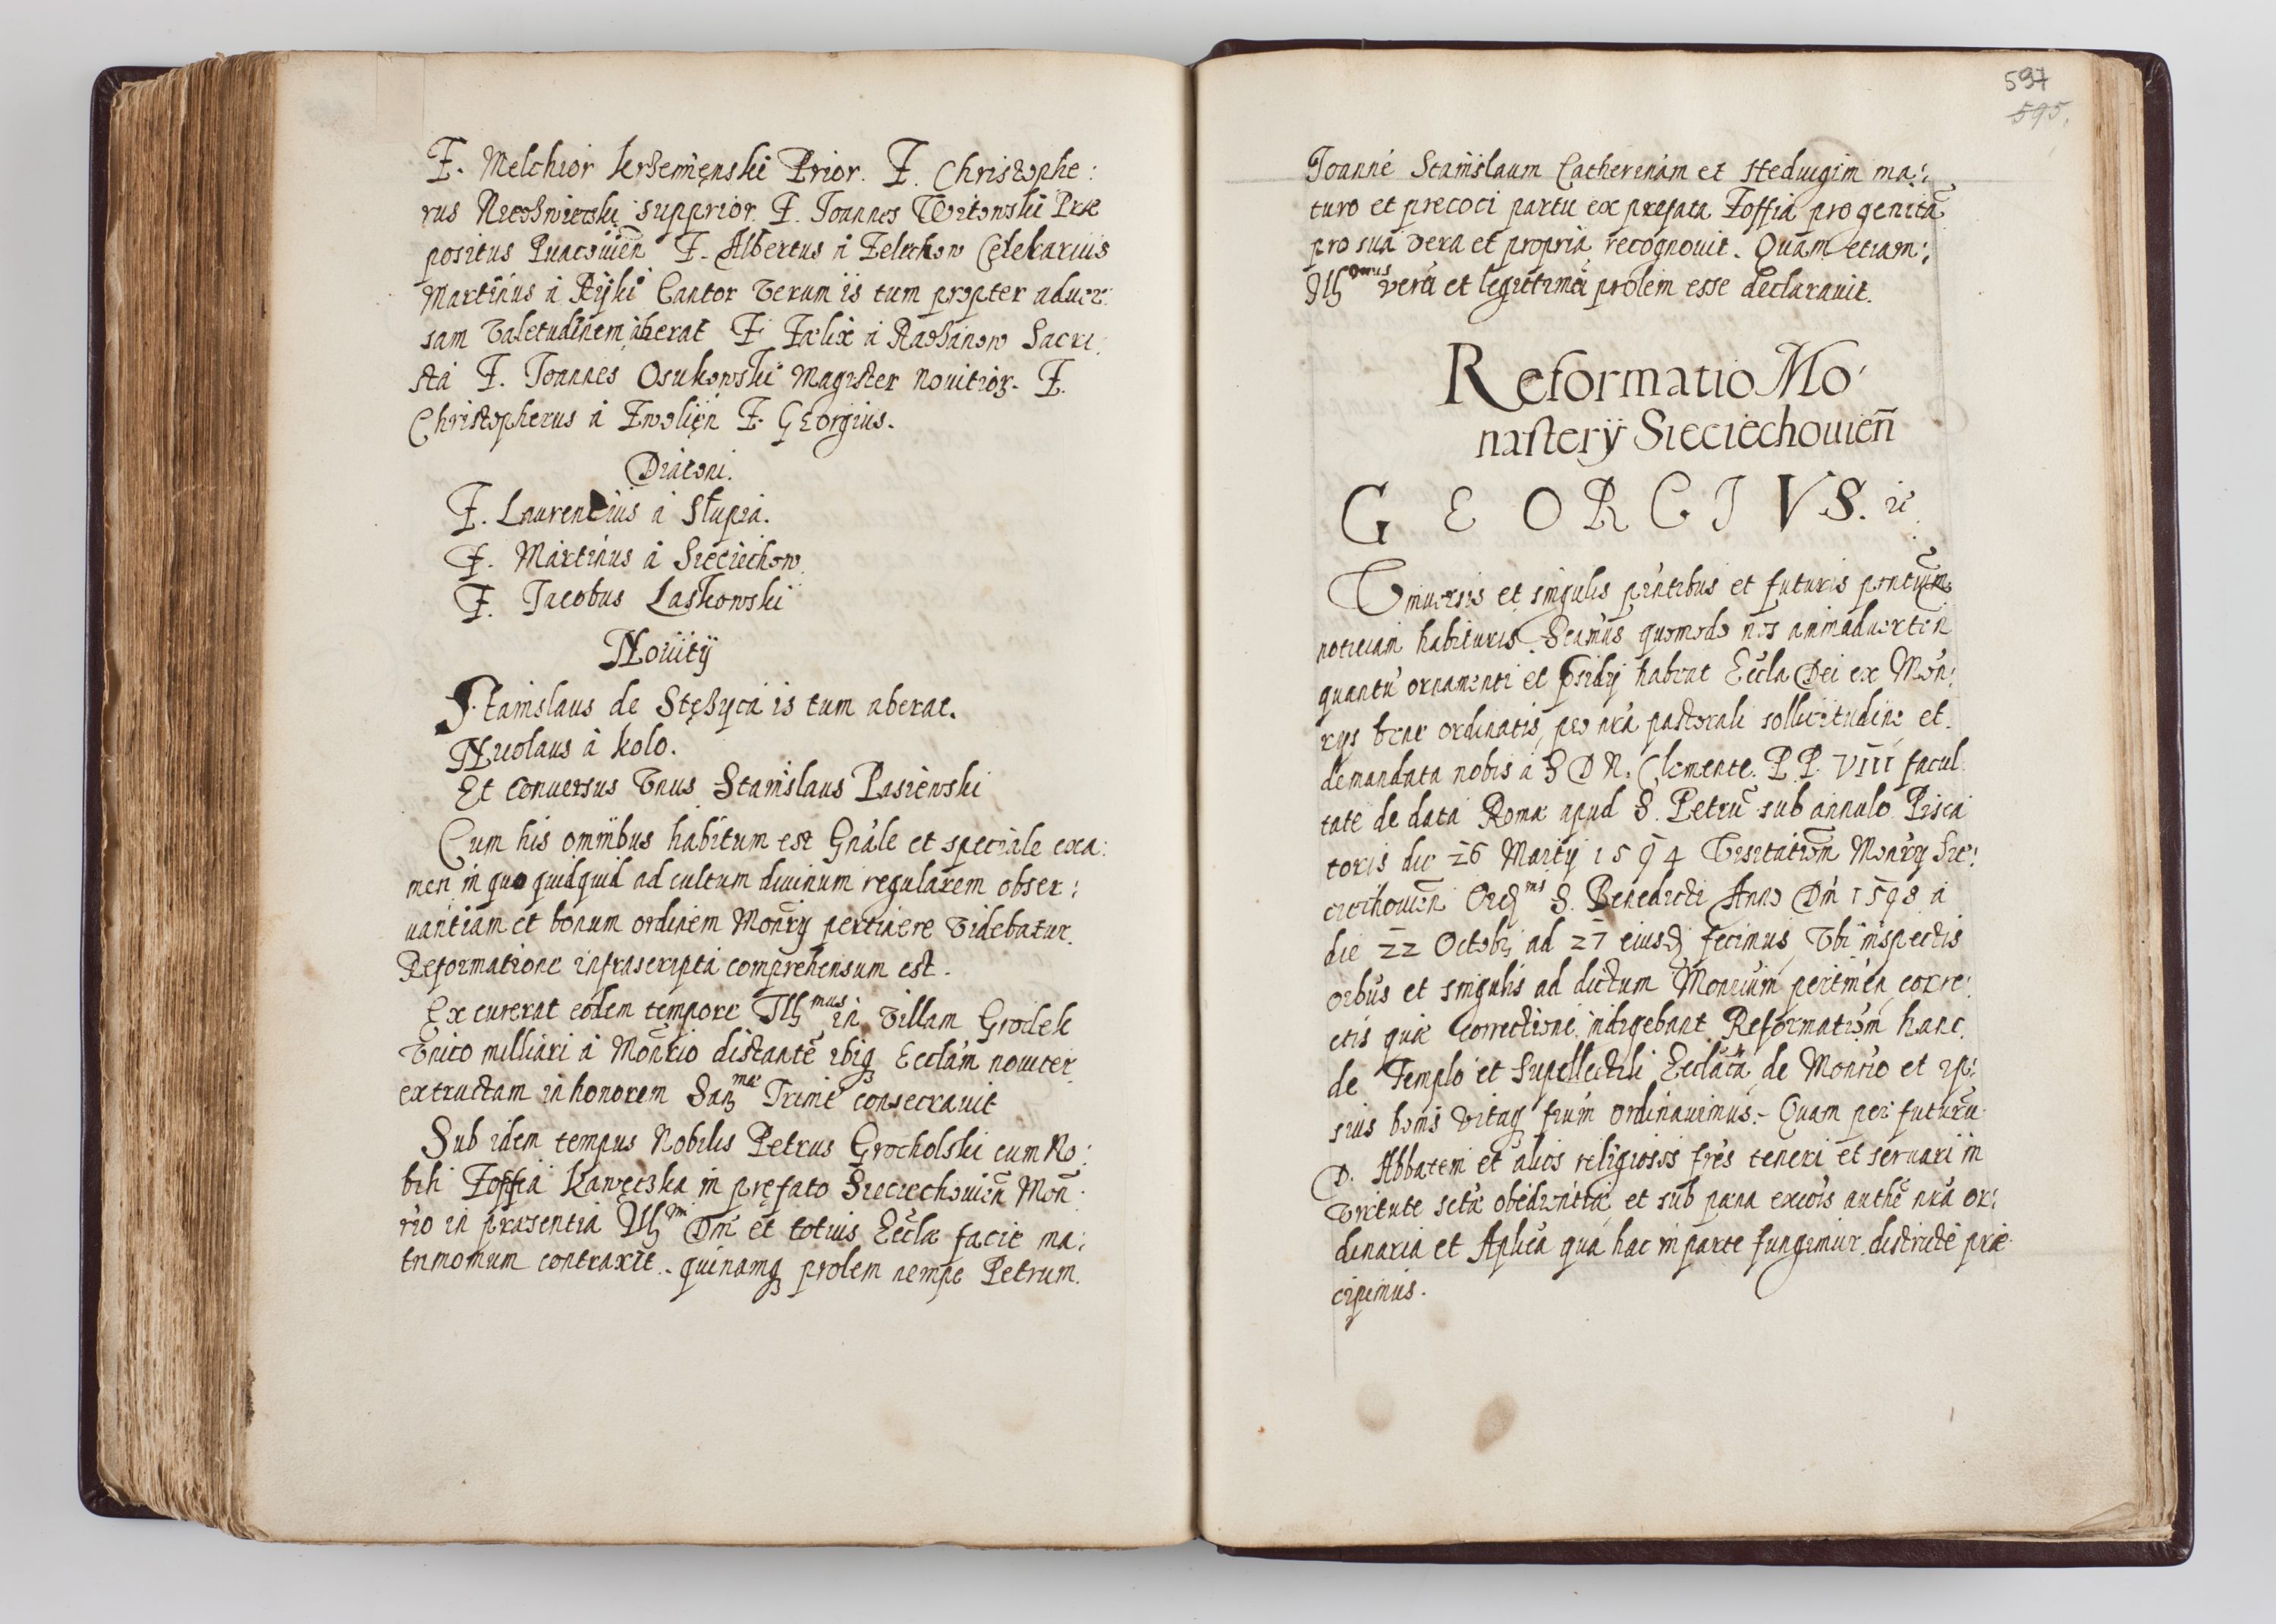 F. Melchior krzemięnski Prior. F. Christophe:
rus supprior. F. Joannes Witowski Præ
positus F. Albertus à Zelechow Celekarius
Martinus à Ryki Cantor Verum is tum propter aduer:
sam Valetudinem aberat F. Fælix à Sacri:
stà F. Joannes Osukowski Magister Nouitior. F.
Christopherus à Zwolięn F. GEorgius.
Diaconi.
F. Laurentius à Slupia.
F. Martinus à Sieciechow
F. Jacobus Laskowski
Nouity
Stanislaus de Stęzyca is tum aberat.
Nicolaus à kolo.
Et Conuersus Vnus Stanislaus Pasiewski
Cum his omnibus habitum est Gnale et speciale exa:
men in quo quidquid ad cultum diuinum regularem obser:
uantiam et bonum ordinem Monry pertinere Videbatur.
Reformatione infrascripta comprehensum est.
Excurerat eodem tempore Ill mus in Villam Grodek
Vnico milliari à Monrio distante ibiq Ecclam nouiter
extructam in honorem San mæ Trinit consecrauit
Sub idem tempus Nobilis Petrus Grocholski cum No:
bili Zoffia Kawęczka in pręfato Sieciechouien Mon:
rio in præsentia Ill mi Dni et totius Ecclæ facie ma:
trimonium contraxit. quinamq prolem nempe Petrum.
597
595.
Joanne Stanislaum Catherinam et Heduigim ma:
turo et precoci partu ex prefata Zoffia progenita
pro sua vera et propria recognouit. Quam etiam:
Ill mus vera et legittima prolem esse declarauit.
Reformatio Mo
nastery Sieciechouien
GEORGIVS. &c
Vniuersis et singulis pntibus et futuris pntium
noticiam habituris. quomodo nos animaduerten
quantu ornamenti et psidy habeat Eccla Dei ex Mon:
rys bene ordinatis, pro nra pastorali sollicitudine et
demandata nobis à S D N. Clemente. P. P. VIII facul
tate de data Romæ apud S. Petru sub annulo Pisca
toris die 26 Marty 1594 Visitation Monry Sie:
ciechouien Ord ms S. Benedicti Anno Dni 1598 à
die 22 Octobr ad 27 eiusd fecimus, Vbi inspectis
oibus et singulis ad dictum Monrium pertinen corre:
ctis quæ Correctione indigebant Reformation hanc
de Templo et Supellectili Ecclãca de Monrio et ip:
sius bonis vitaq frum ordinauimus. Quam per futuru
D. Abbatem et alios religiosos fres teneri et seruari in
virtute sctæ obedientiæ et sub pæna excois authe nra or:
dinaria et Aplica qua hac in parte fungimur districtè præ
cipimus.